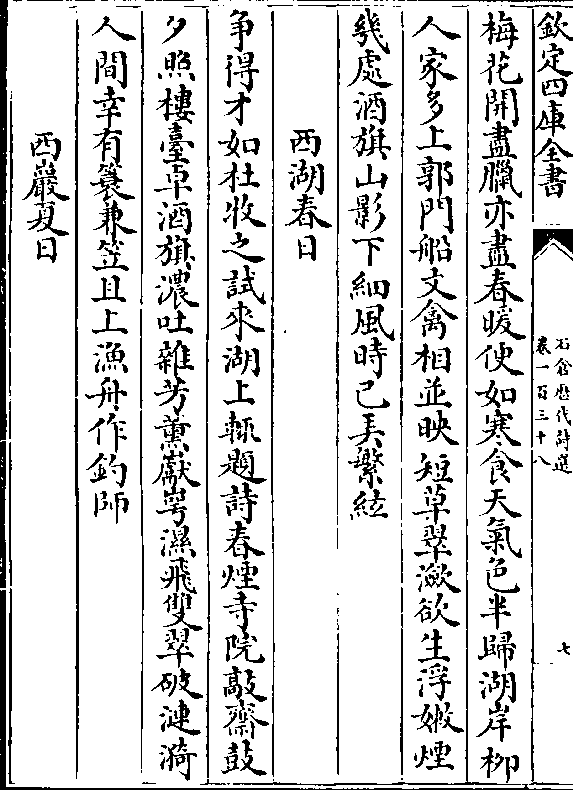 欽定四庫全書
石倉歷代詩選
卷一百三十八
七
梅花開盡臘亦盡春暖便如寒食天氣色半歸湖岸柳
人家多上郭門船文禽相並映短草翠瀲欲生浮嫩煙
幾處酒旗山影下細風時已弄繁絃
西湖春日
爭得才如杜牧之試來湖上輒題詩春煙寺院敲齋鼓
夕照樓臺卓酒旗濃吐雜芳薰巘崿濕飛雙翠破漣漪
人間幸有簑兼笠且上漁舟作釣師
西巖夏日